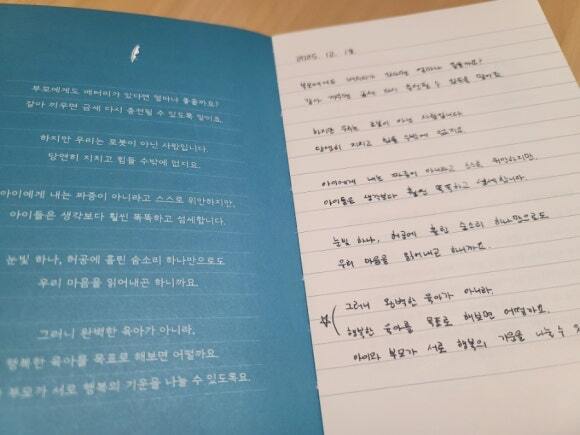 부모에게도 배터리가 있다면 얼마나 좋을까요?
갈아 끼우면 금세 다시 충전될 수 있도록 말이죠.
하지만 우리는 로봇이 아닌 사람입니다.
당연히 지치고 힘들 수밖에 없지요.
아이에게 내는 짜증이 아니라고 스스로 위안하지만,
아이들은 생각보다 훨씬 똑똑하고 섬세합니다.
눈빛 하나, 허공에 흘린 숨소리 하나만으로도
우리 마음을 읽어내곤 하니까요.
그러니 완벽한 육아가 아니라,
행복한 육아를 목표로 해보면 어떨까요
부모가 서로 행복의 기운을 나눌 수 있도록요.
2025. 12. 18.
부모에게도 배터리가 있다면 얼마나 좋을까요?
갈아 끼우면 금세 다시 충전될 수 있도록 말이죠.
하지만 우리는 로봇이 아닌 사람입니다.
당연히 지치고 힘들 수밖에 없지요.
아이에게 내는 짜증이 아니라고 스스로 위안하지만,
아이들은 생각보다 훨씬 똑똑하고 섬세합니다.
눈빛 하나, 허공에 흘린 숨소리 하나만으로도
우리 마음을 읽어내곤 하니까요.
그러니 완벽한 육아가 아니라,
행복한 육아를 목표로 해보면 어떨까요.
아이와 부모가 서로 행복의 기운을 나눌 수